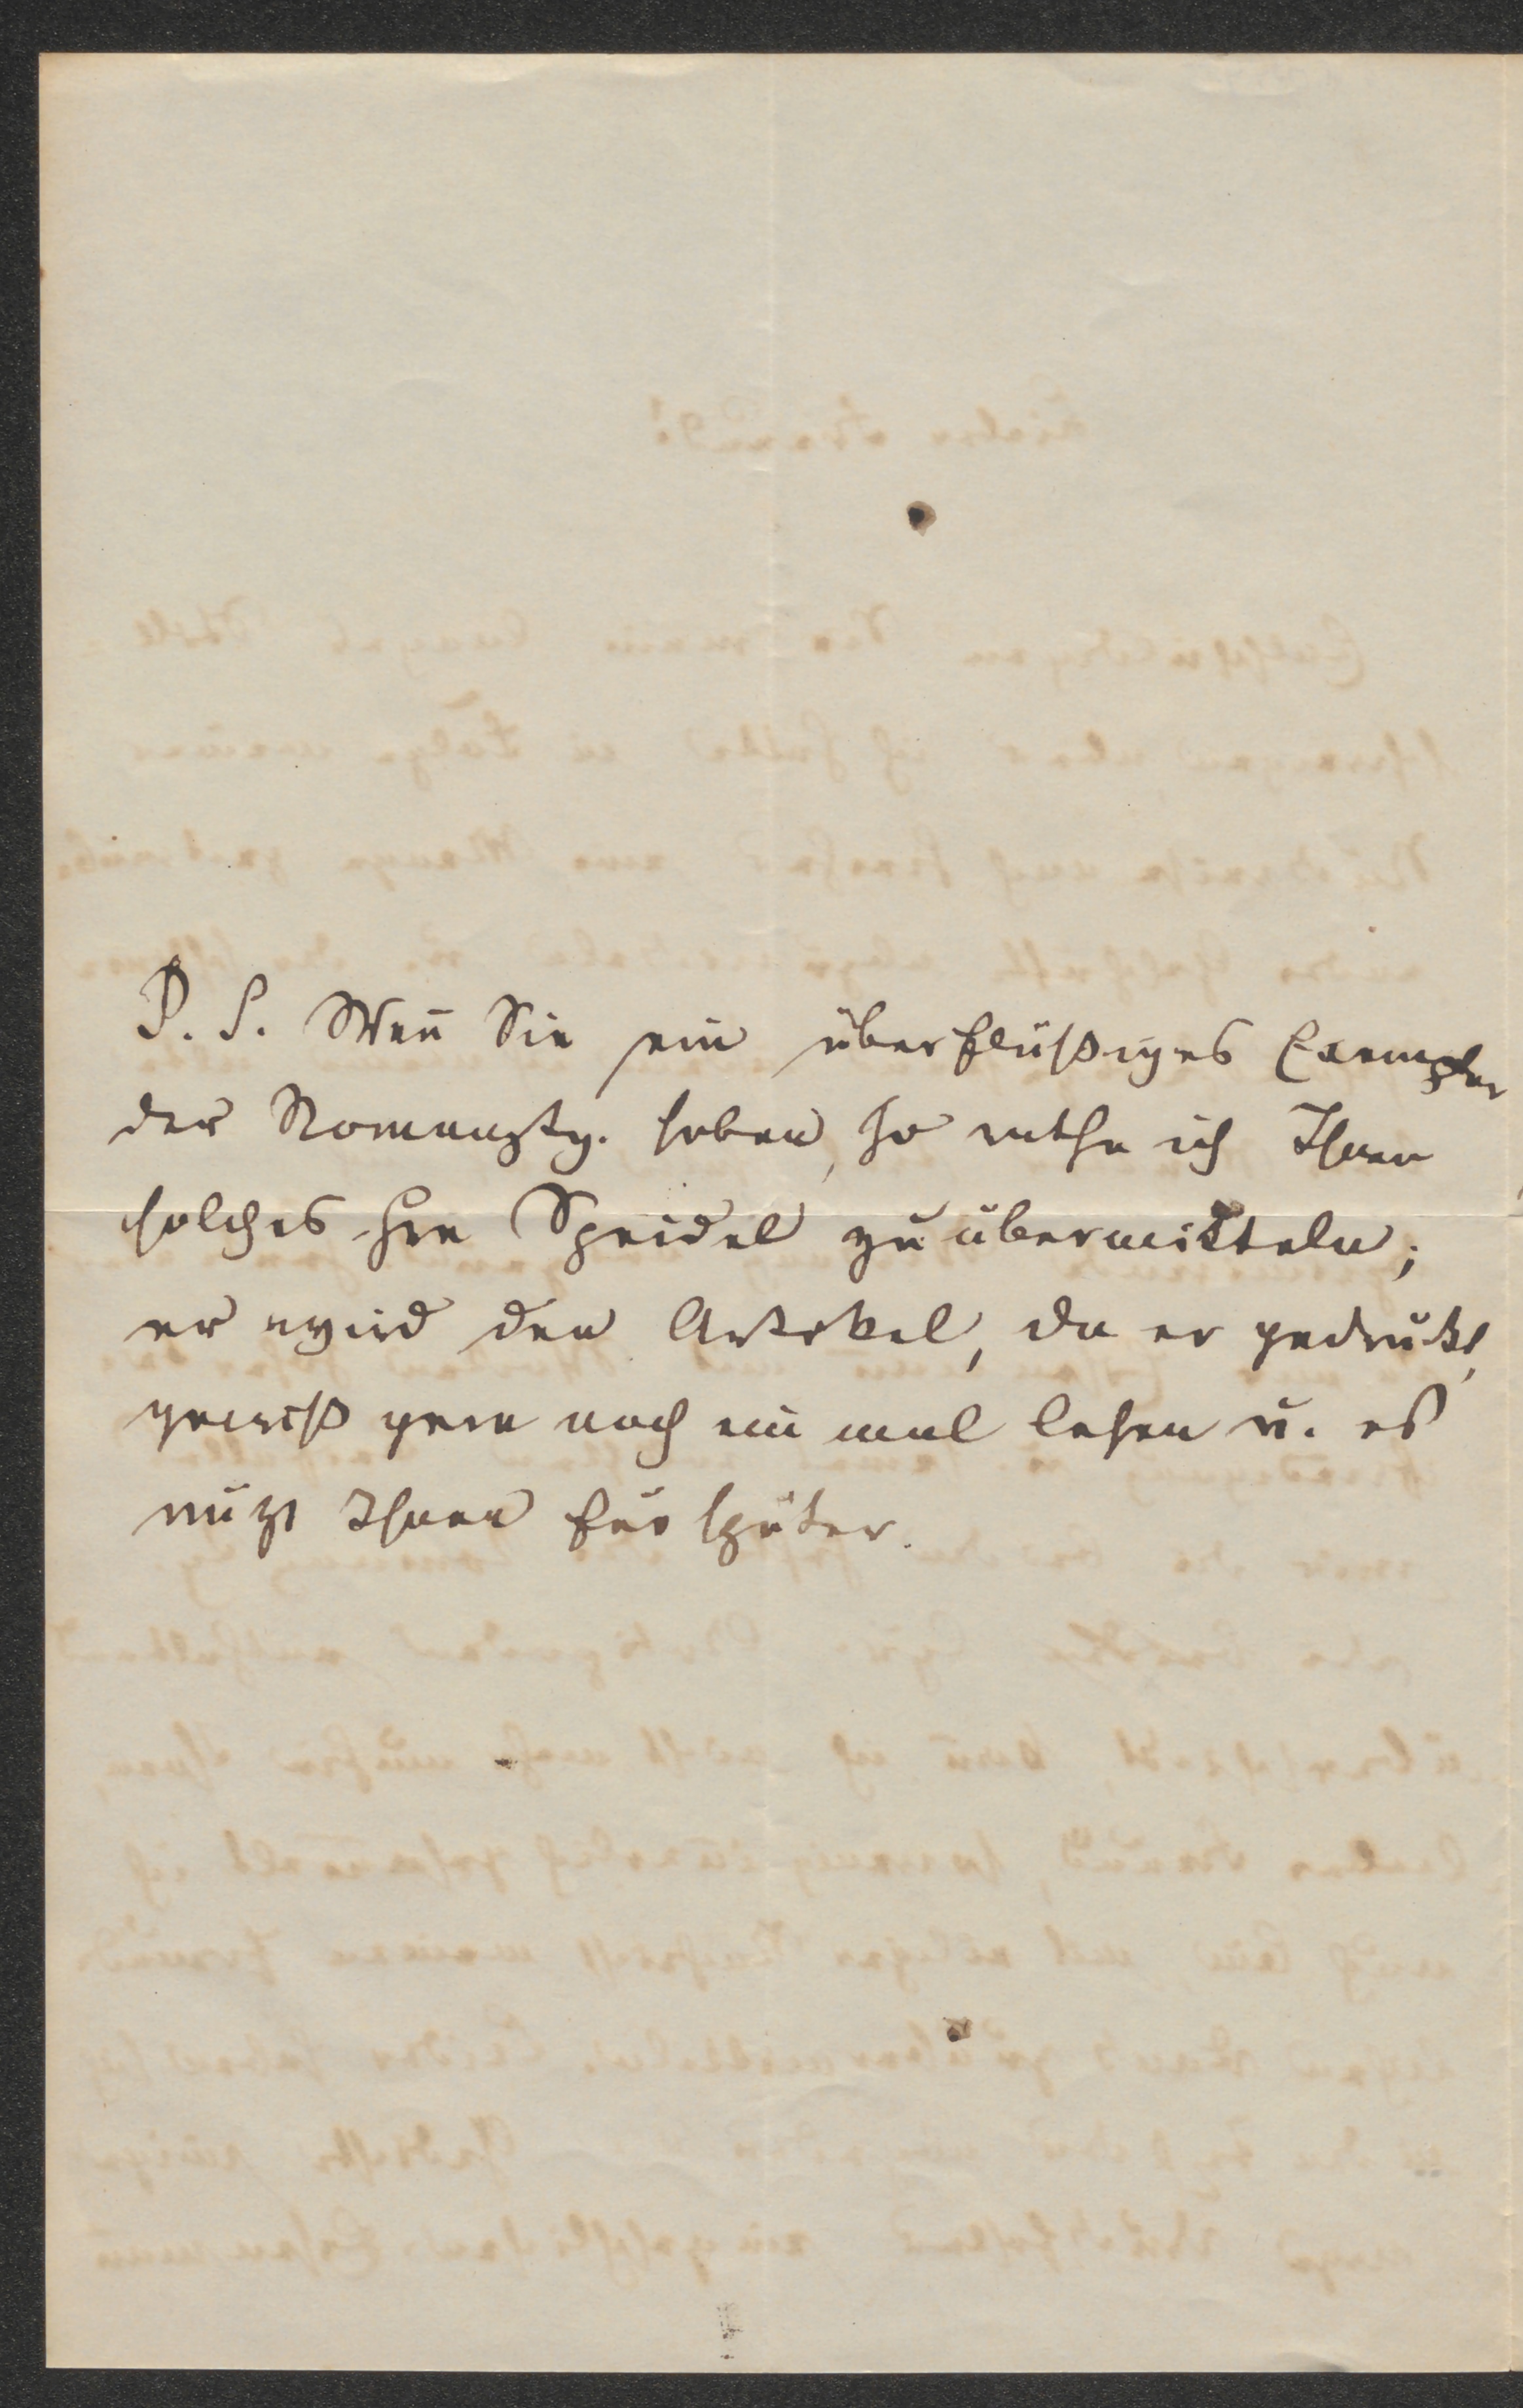 P. S. Wen̄ Sie ein überflüßiges Exemplar
der Romanztg. haben, so rathe ich Ihnen
solches Hrn Speidel zu übermitteln;
er wird den Artikel, da er gedrukt,
gewiß gern noch ein mal lesen u. es
nüzt Ihnen für später.